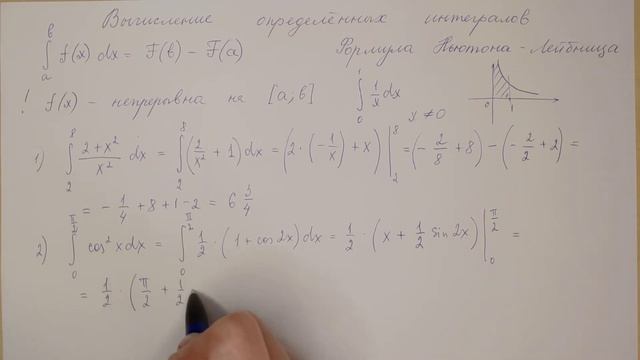 Вычисление определённых интегралов
∫ₐᵇ f(x) dx = F(b) − F(a) Формула Ньютона-Лейбница
! f(x) – непрерывна на [a; b] ∫₀¹ 1/x dx x ≠ 0 0 1
1) ∫₂⁸ (2 + x²)/x² dx = ∫₂⁸ (2/x² + 1) dx = (2 · (−1/x) + x) |₂⁸ = (−2/8 + 8) − (−2/2 + 2) =
= −1/4 + 8 + 1 − 2 = 6 3/4
2) ∫₀^(π/2) cos² x dx = ∫₀^(π/2) 1/2 · (1 + cos 2x) dx = 1/2 · (x + 1/2 sin 2x) |₀^(π/2) =
= 1/2 · (π/2 + 1/2